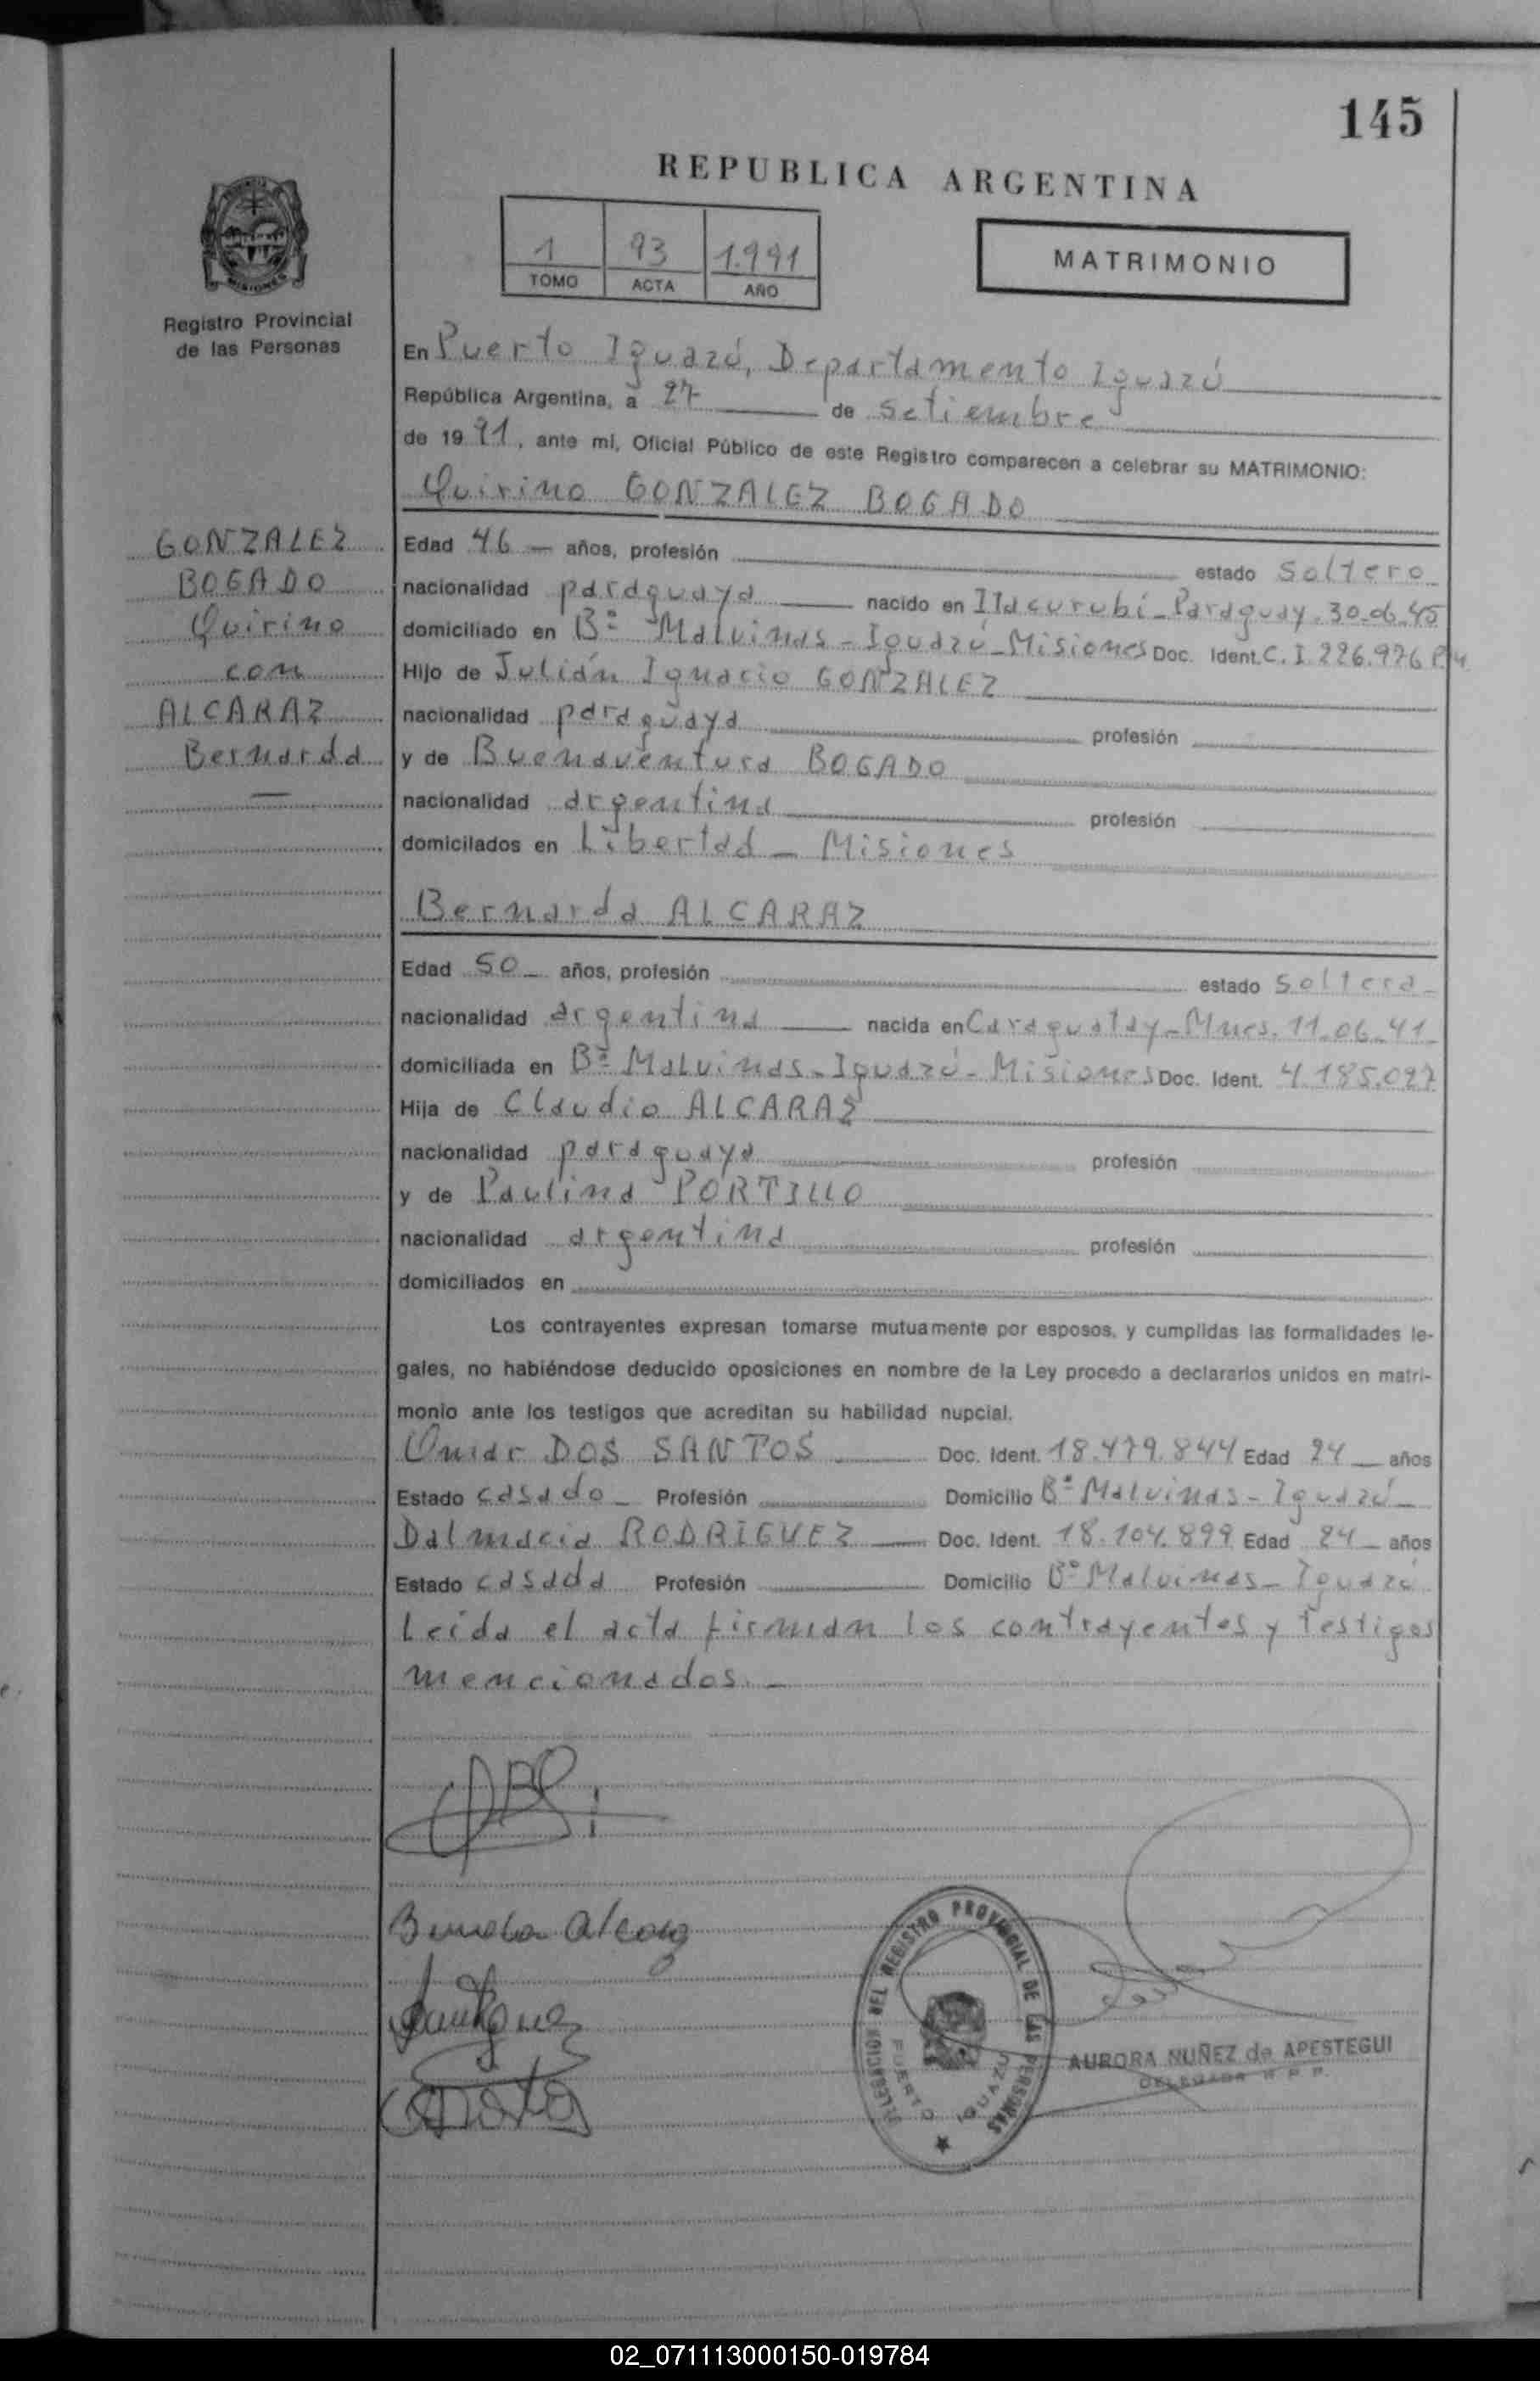 145
REPUBLICA ARGENTINA
1 93 1.991
TOMO ACTA AÑO
MATRIMONIO
Registro Provincial
de las Personas
En Puerto Iguazú, Departamento Iguazú
República Argentina, a 27 de setiembre
de 1991, ante mi, Oficial Público de este Registro comparecen a celebrar su MATRIMONIO:
Quirino GONZALEZ BOGADO
GONZALEZ
BOGADO
Quirino
con
ALCARAZ
Bernarda
—
Edad 46 — años, profesión estado soltero
nacionalidad paraguaya — nacido en Itacurubí - Paraguay. 30.06.45
domiciliado en Bº Malvinas - Iguazú - Misiones Doc. Ident. C.I. 226.976
Hijo de Julián Ignacio GONZALEZ
nacionalidad paraguaya profesión
y de Buenaventura BOGADO
nacionalidad argentina profesión
domicilados en Libertad - Misiones
Bernarda ALCARAZ
Edad 50 - años, profesión estado soltera -
nacionalidad argentina — nacida en Caraguatay - Mnes. 11.06.41
domiciliada en Bº Malvinas - Iguazú - Misiones Doc. Ident. 4.185.027
Hija de Claudio ALCARAZ
nacionalidad paraguaya profesión
y de Paulina PORTILLO
nacionalidad argentina profesión
domiciliados en
Los contrayentes expresan tomarse mutuamente por esposos, y cumplidas las formalidades le-
gales, no habiéndose deducido oposiciones en nombre de la Ley procedo a declararlos unidos en matri-
monio ante los testigos que acreditan su habilidad nupcial.
Omar DOS SANTOS Doc. Ident. 18.479.844 Edad 24 — años
Estado casado - Profesión Domicilio Bº Malvinas - Iguazú -
Dalmacia RODRIGUEZ — Doc. Ident. 18.104.899 Edad 24 - años
Estado casada Profesión Domicilio Bº Malvinas - Iguazú
Leída el acta firman los contrayentes y testigos
mencionados. -
DELEGACION DEL REGISTRO PROVINCIAL DE LAS PERSONAS
PUERTO IGUAZU
AURORA NUÑEZ de APESTEGUI
DELEGADA R.P.P.
02_071113000150-019784